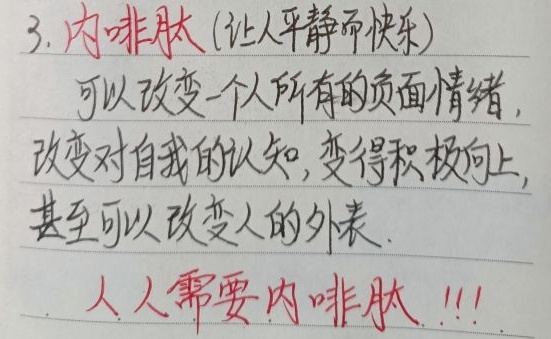 3. 内啡肽(让人平静而快乐)
可以改变一个人所有的负面情绪,
改变对自我的认知,变得积极向上,
甚至可以改变人的外表.
人人需要内啡肽!!!